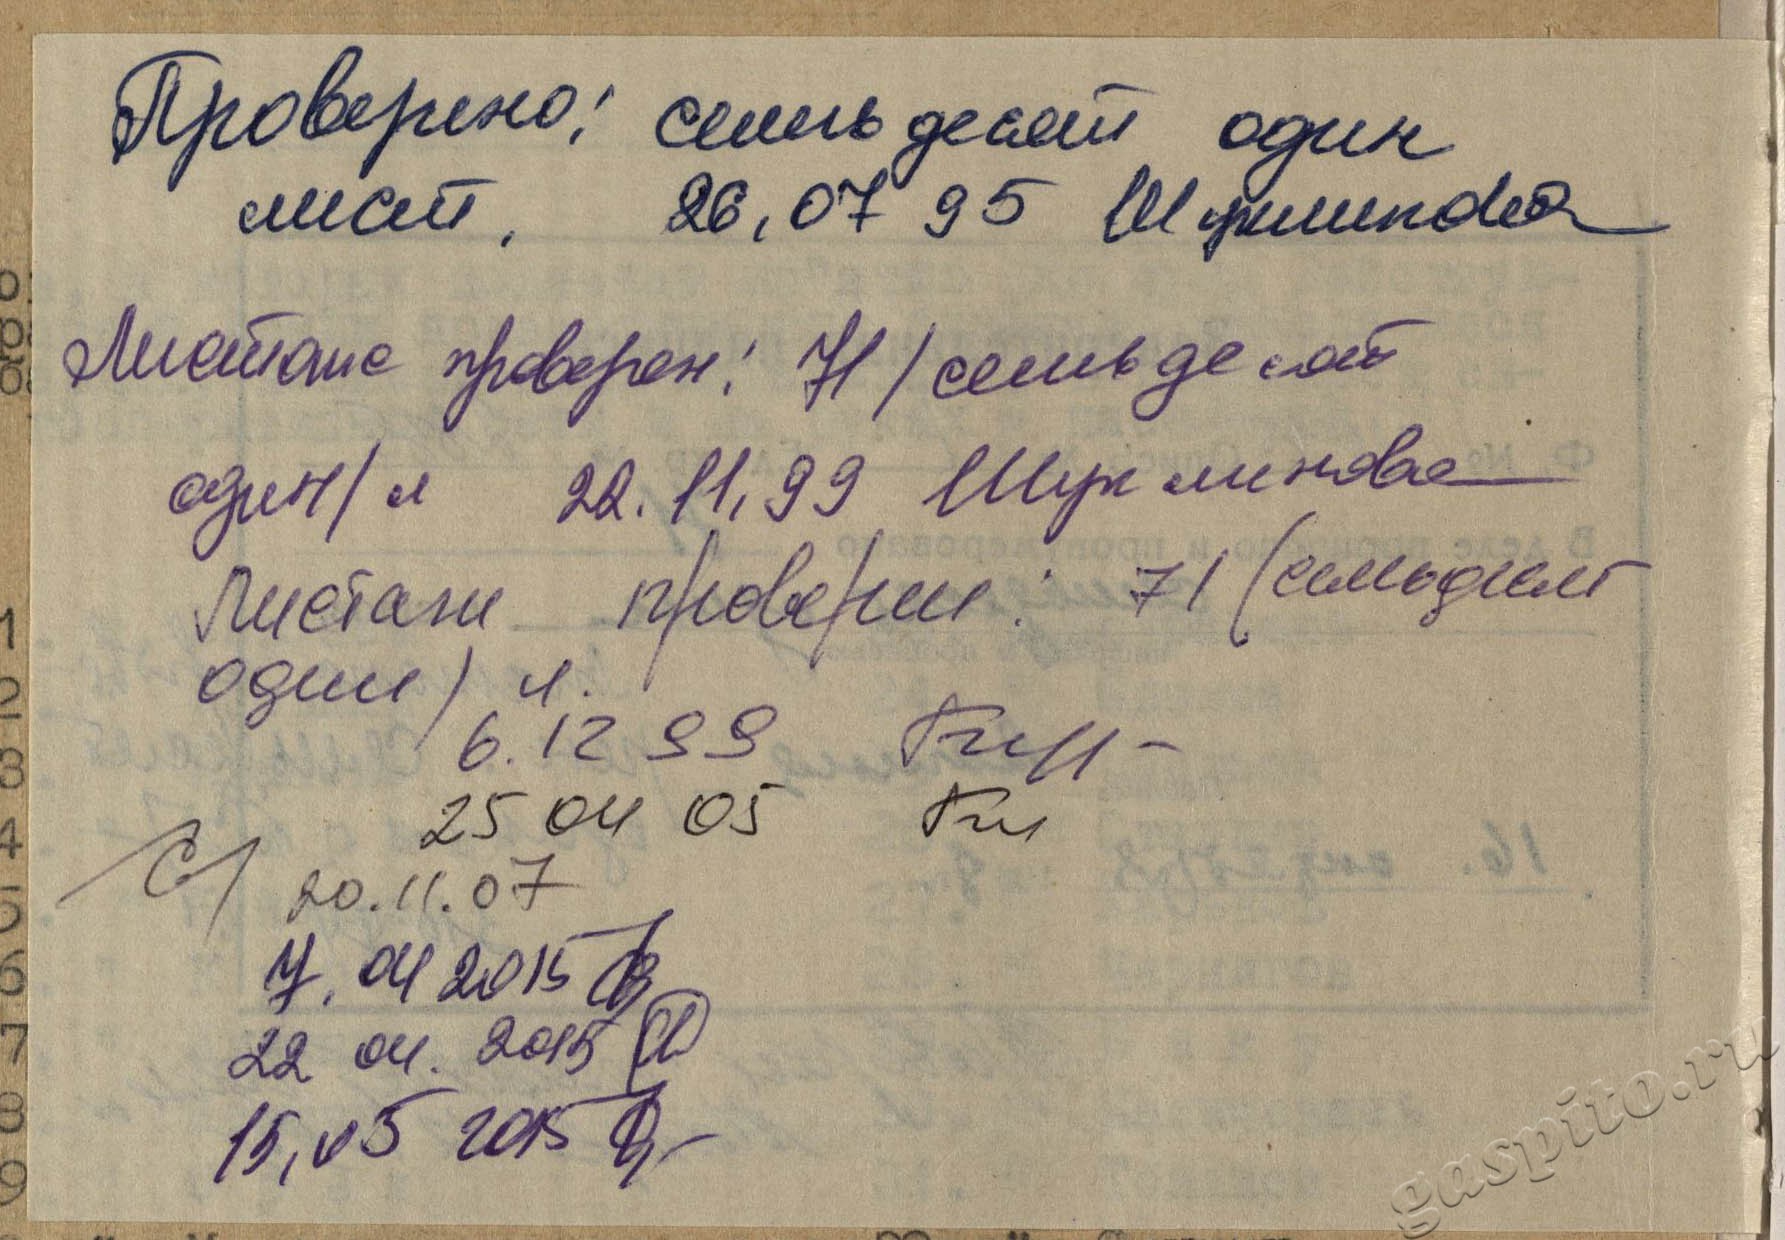 Проверено: семьдесят один
лист. 26.07 95 Шуклинова
Листаж проверен: 71 /семьдесят
один/ л 22.11.99 Шуклинова
Листаж проверен: 71 (семьдесят
один) л.
6.12 99
25 04 05
20.11.07
7. 04 2015
22 04. 2015
15.05 2015
1
2
3
4
5
6
7
8
9
gaspito.ru